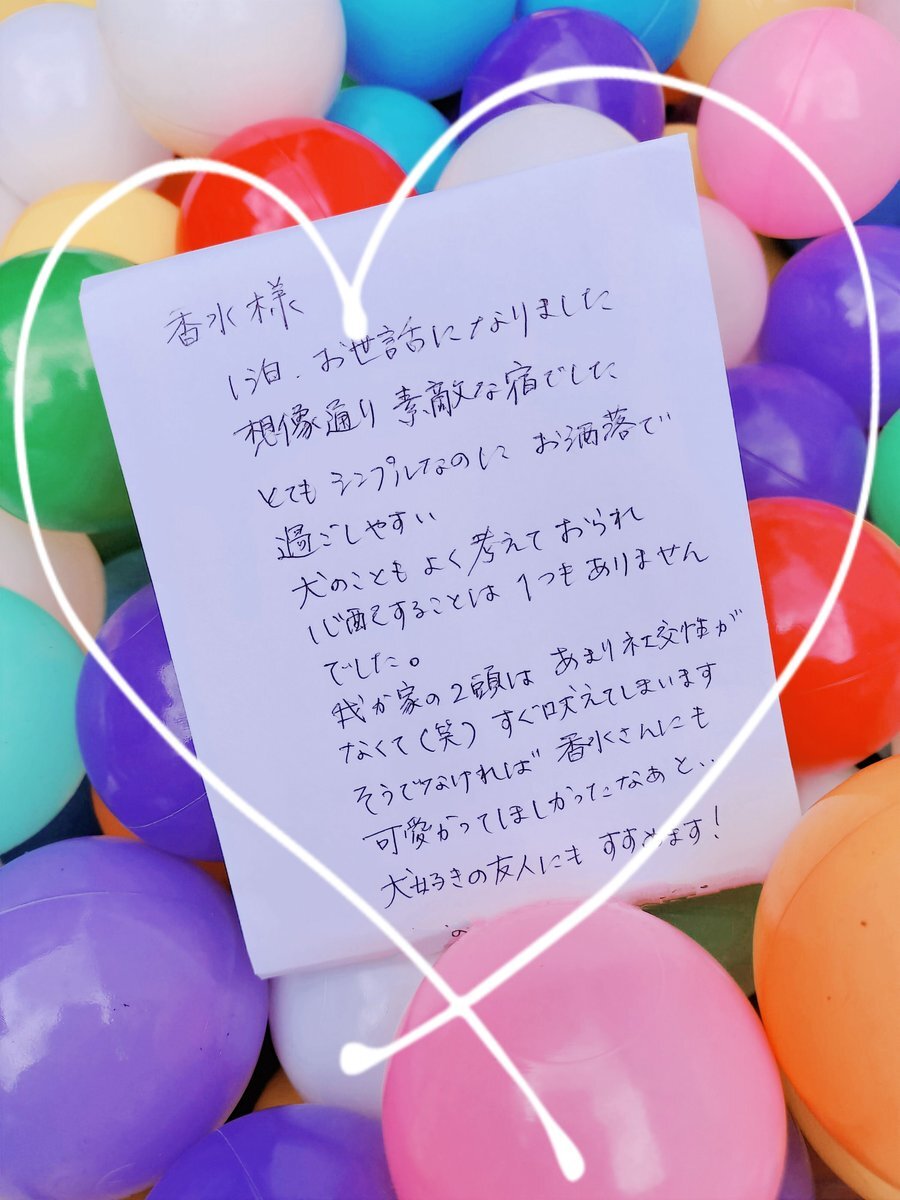 香水様
1泊、お世話になりました
想像通り素敵な宿でした
とてもシンプルなのに お洒落で
過ごしやすい
犬のこともよく考えておられ
心配することは1つもありません
でした。
我が家の2頭は あまり社交性が
なくて(笑)すぐ吠えてしまいます
そうでなければ 香水さんにも
可愛がってほしかったなあと..
犬好きの友人にも すすめます!